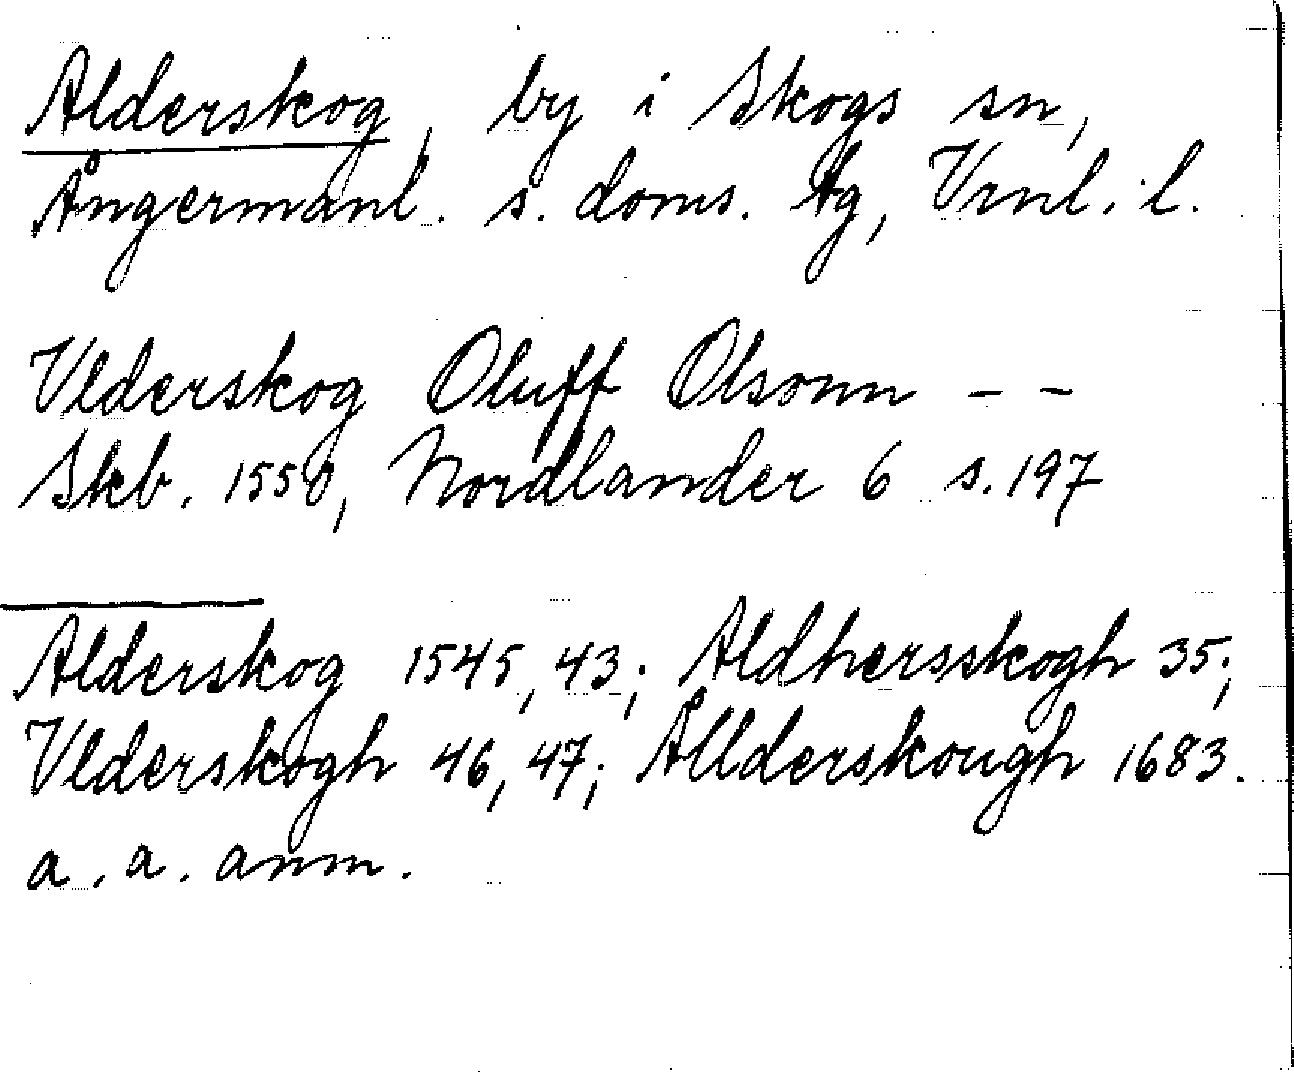 Alderskog, by i Skogs sn,
Ångermanl. s. doms. tg, Vrnl. l.
Vlderskog Oluff Olsonn - -
Skb. 1550, Nordlander 6 s. 197
Alderskog 1545, 43; Aldhersskogh 35;
Vlderskogh 46, 47; Ållderskough 1683.
a. a. anm.